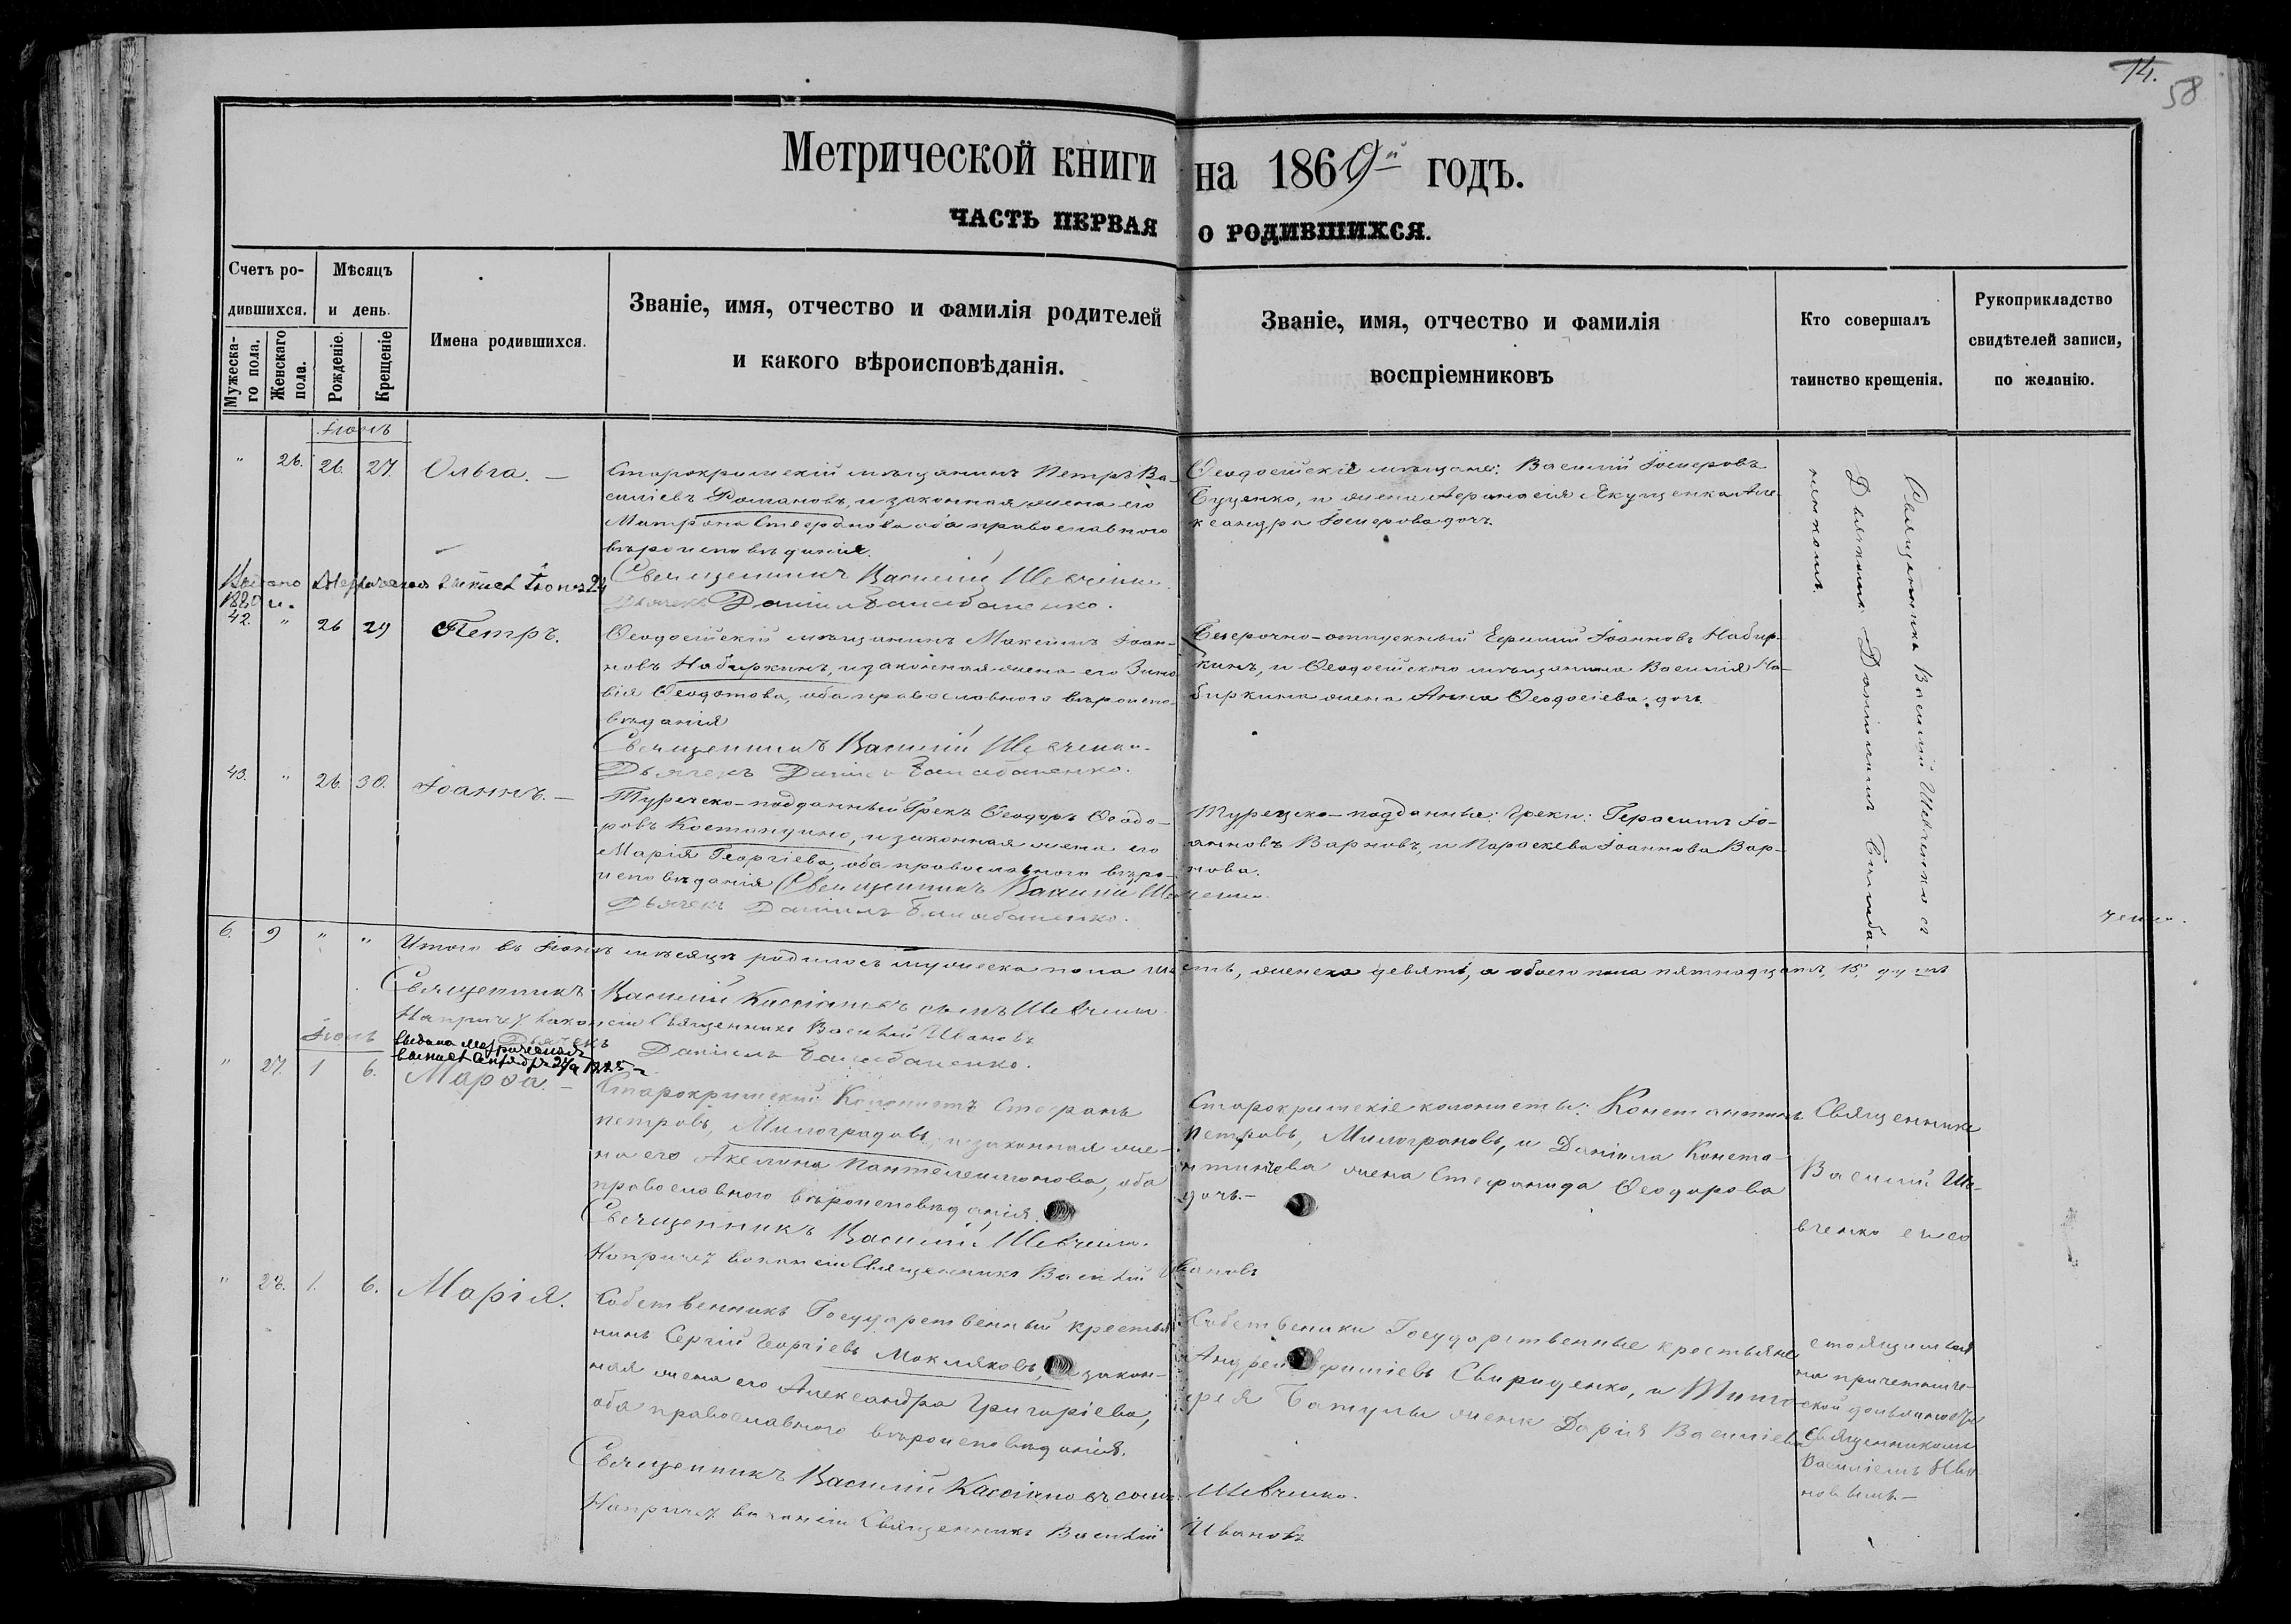 14.
58
Метрической книги на 1869й годъ.
ЧАСТЬ ПЕРВАЯ О РОДИВШИХСЯ.
Счетъ ро-
дившихся.
Мужеска-
го пола.
Женскаго
пола.
Мѣсяцъ
и день.
Рожденіе.
Крещеніе
Имена родившихся.
Званіе, имя, отчество и фамилія родителей
и какого вѣроисповѣданія.
Званіе, имя, отчество и фамилія
воспріемниковъ
Кто совершалъ
таинство крещенія.
Рукоприкладство
свидѣтелей записи,
по желанію.
Іюнь
" 26. 26. 27. Ольга. —
Старокрымскій мѣщанинъ Петръ Ва-
силіевъ Романовъ, и законная жена его
Матрона Стефанова оба православнаго
вѣроисповѣданія.
Священникъ Василій Шевченко
Дьячекъ Даніилъ Балабаненко.
Ѳеодосійскіе мѣщане: Василій Іосифовъ
Буценко, и жена Аѳанасія Якущенка Але-
ксандра Іосифова дочь.
Священника Василій Шевченко съ
Дьячкомъ Даніиломъ Балаба-
ненкомъ.
42. " 26 29 Петръ.
Ѳеодосійскій мѣщанинъ Максимъ Іоан-
новъ Набиркинъ, и законная жена его Зино-
вія Ѳеодотова, оба православнаго вѣроиспо-
вѣданія
Священникъ Василій Шевченко.
Дьячекъ Даніилъ Балабаненко.
Безсрочно-отпускный Ефимій Іоанновъ Набир-
кинъ, и Ѳеодосійскаго мѣщанина Василія На-
биркина жена Анна Ѳеодосіева дочь.
43. " 26. 30. Іоаннъ. —
Турецко-подданный Грекъ Ѳеодоръ Ѳеодо-
ровъ Костандино, и законная жена его
Марія Георгіева, оба православнаго вѣро-
исповѣданія Священникъ Василій Шевченко.
Дьячекъ Даніилъ Балабаненко.
Турецко-подданные: Греки: Герасимъ Іо-
анновъ Варновъ, и Параскева Іоаннова Вар-
нова.
6. 9 " " Итого въ Іюнѣ мѣсяцѣ родилось мужеска пола шесть, женска девять, а обоего пола пятнадцать, 15, душъ
Священникъ Василій Кассіановъ сынъ Шевченко.
Священникъ Василій Ивановъ
Дьячекъ Даніилъ Балабаненко.
Іюль
выдана метрическая
" 27. 1 6. Марѳа. —
Старокрымскій Колонистъ Стефанъ
Петровъ, Милоградовъ, и законная же-
на его Акелина Пантелеимонова, оба
православнаго вѣроисповѣданія.
Священникъ Василій Шевченко.
Священникъ Василій Ивановъ
Старокрымскіе колонисты: Константинъ
Петровъ, Милограновъ, и Даніила Конста-
нтинова жена Стефанида Ѳеодорова
дочь. —
Священникъ
Василій Ше-
вченко съ
" 28. 1. 6. Марія.
Собственникъ Государственный крестья-
нинъ Сергій Георгіевъ Мокляковъ, и закон-
ная жена его Александра Григоріева,
оба православнаго вѣроисповѣданія.
Священникъ Василій Кассіановъ сынъ Шевченко.
Священникъ Василій Ивановъ
Собственики Государственные крестьяне
Андрей Свириденко, и
Батулы жена Дарія Василіева
Священникомъ
Василіемъ Ива-
новымъ. —